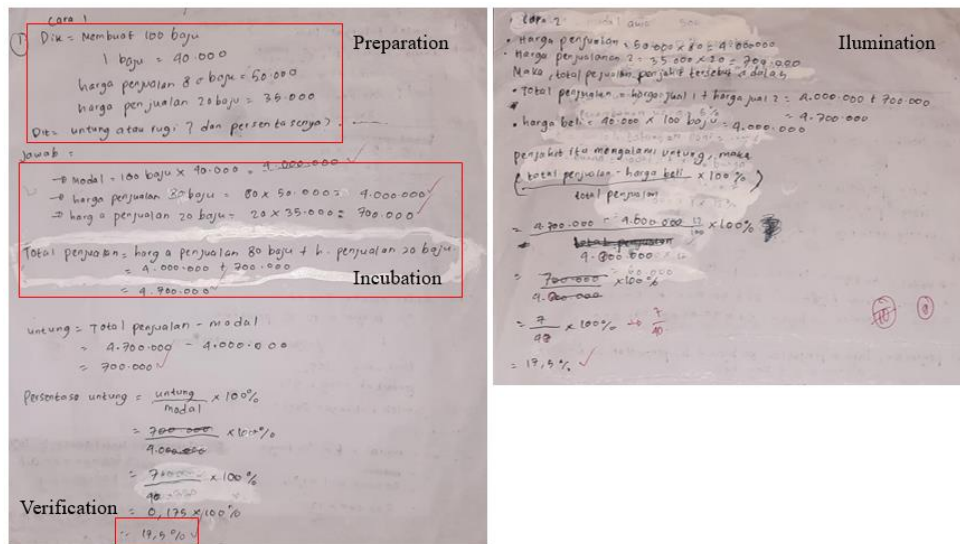 Cara 1
1 Dik = Membuat 100 baju
Preparation
1 baju = 40.000
harga penjualan 80 baju = 50.000
harga penjualan 20 baju = 35.000
Dit = untung atau rugi ? dan persentasenya ?
Jawab =
→ Modal = 100 baju x 40.000 = 4.000.000
→ harga penjualan 80 baju = 80 x 50.000 = 4.000.000
→ harga penjualan 20 baju = 20 x 35.000 = 700.000
Total penjualan = harga penjualan 80 baju + h. penjualan 20 baju
= 4.000.000 + 700.000
Incubation
= 4.700.000
untung = Total penjualan - modal
= 4.700.000 - 4.000.000
= 700.000
Persentase untung = untung / modal x 100%
= 700.000 / 4.000.000 x 100%
= 700.000 / 40 x 100%
Verification
= 0,175 x 100%
= 17,5%
Cara 2
Ilumination
• Harga penjualan = 50.000 x 80 = 4.000.000
• Harga penjualanan 2 = 35.000 x 20 = 700.000
Maka, total pejualan penjahit tersebut adalah
• Total penjualan = harga jual 1 + harga jual 2 = 4.000.000 + 700.000
= 4.700.000
• harga beli = 40.000 x 100 baju = 4.000.000
penjahit itu mengalami untung, maka
( total penjualan - harga beli / total penjualan x 100% )
= 4.700.000 - 4.000.000 / 4.000.000 x 100%
= 700.000 / 4.000.000 x 100%
= 7 / 40 x 100% → 7 / 40
= 17,5%